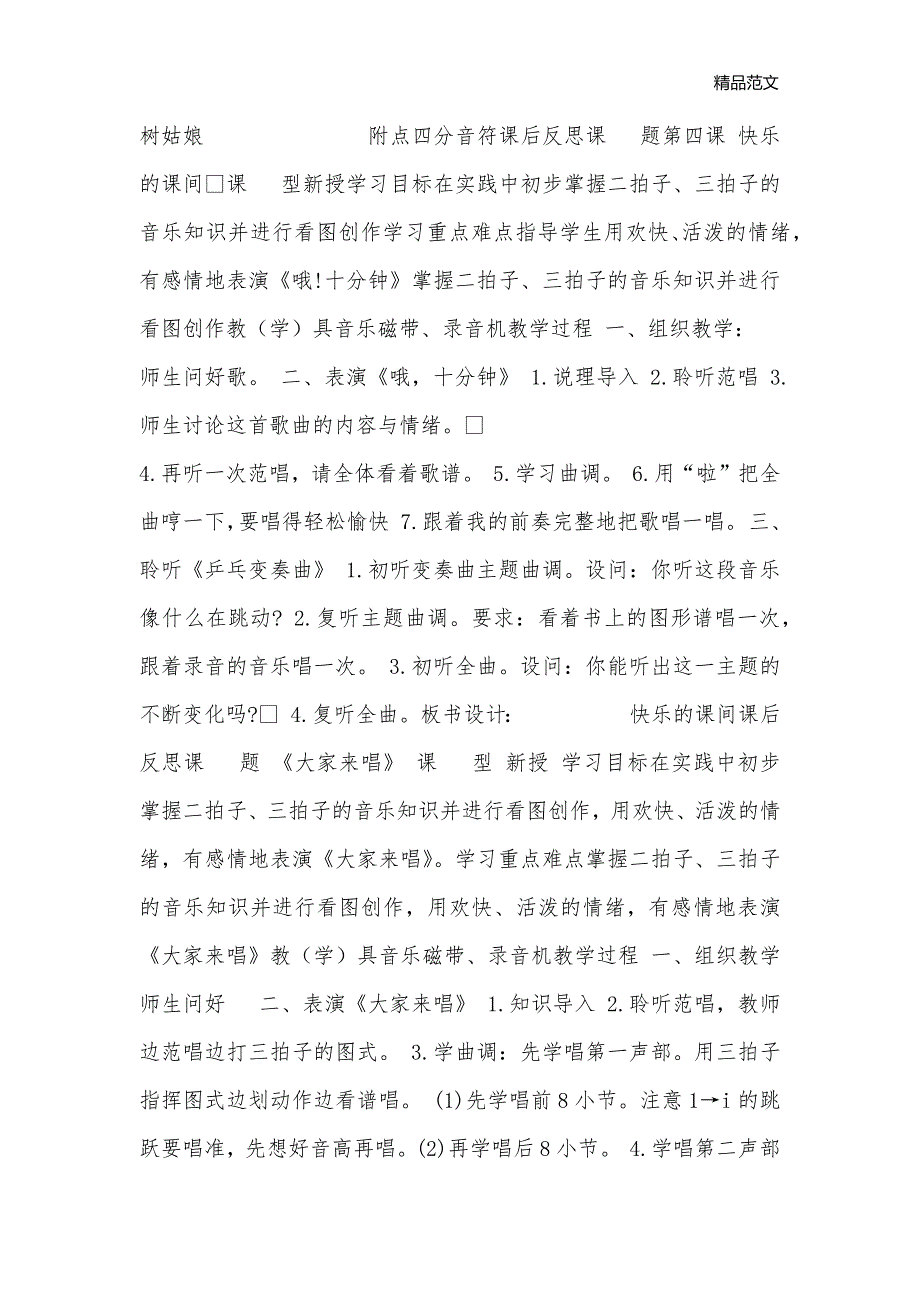 精品范文
树姑娘 附点四分音符课后反思课 题第四课 快乐
的课间□课 型新授学习目标在实践中初步掌握二拍子、三拍子的
音乐知识并进行看图创作学习重点难点指导学生用欢快、活泼的情绪，
有感情地表演《哦!十分钟》掌握二拍子、三拍子的音乐知识并进行
看图创作教（学）具音乐磁带、录音机教学过程 一、组织教学：
师生问好歌。 二、表演《哦，十分钟》 1.说理导入 2.聆听范唱 3.
师生讨论这首歌曲的内容与情绪。□
4.再听一次范唱，请全体看着歌谱。 5.学习曲调。 6.用“啦”把全
曲哼一下，要唱得轻松愉快 7.跟着我的前奏完整地把歌唱一唱。三、
聆听《乒乓变奏曲》 1.初听变奏曲主题曲调。设问：你听这段音乐
像什么在跳动? 2.复听主题曲调。要求：看着书上的图形谱唱一次，
跟着录音的音乐唱一次。 3.初听全曲。设问：你能听出这一主题的
不断变化吗?□ 4.复听全曲。板书设计： 快乐的课间课后
反思课 题 《大家来唱》 课 型 新授 学习目标在实践中初步
掌握二拍子、三拍子的音乐知识并进行看图创作，用欢快、活泼的情
绪，有感情地表演《大家来唱》。学习重点难点掌握二拍子、三拍子
的音乐知识并进行看图创作，用欢快、活泼的情绪，有感情地表演
《大家来唱》教（学）具音乐磁带、录音机教学过程 一、组织教学
师生问好 二、表演《大家来唱》 1.知识导入 2.聆听范唱，教师
边范唱边打三拍子的图式。 3.学曲调：先学唱第一声部。用三拍子
指挥图式边划动作边看谱唱。 (1)先学唱前8小节。注意1→i的跳
跃要唱准，先想好音高再唱。(2)再学唱后8小节。 4.学唱第二声部